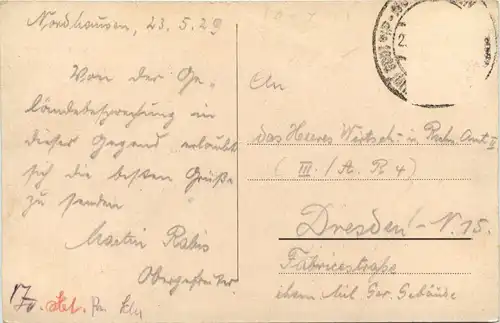 Nordhausen, 23.5.29
Von der Ge-
ländebesprechung in
dieser Gegend erlaubt
sich die besten Grüße
zu senden
Martin Rabis
Obergefreiter.
An
das Heeres Wirtsch.- u. Rechn. Amt II
(III./A.R 4)
Dresden-N. 15.
Fabricestraße
ehem. Mil. Ger. Gebäude